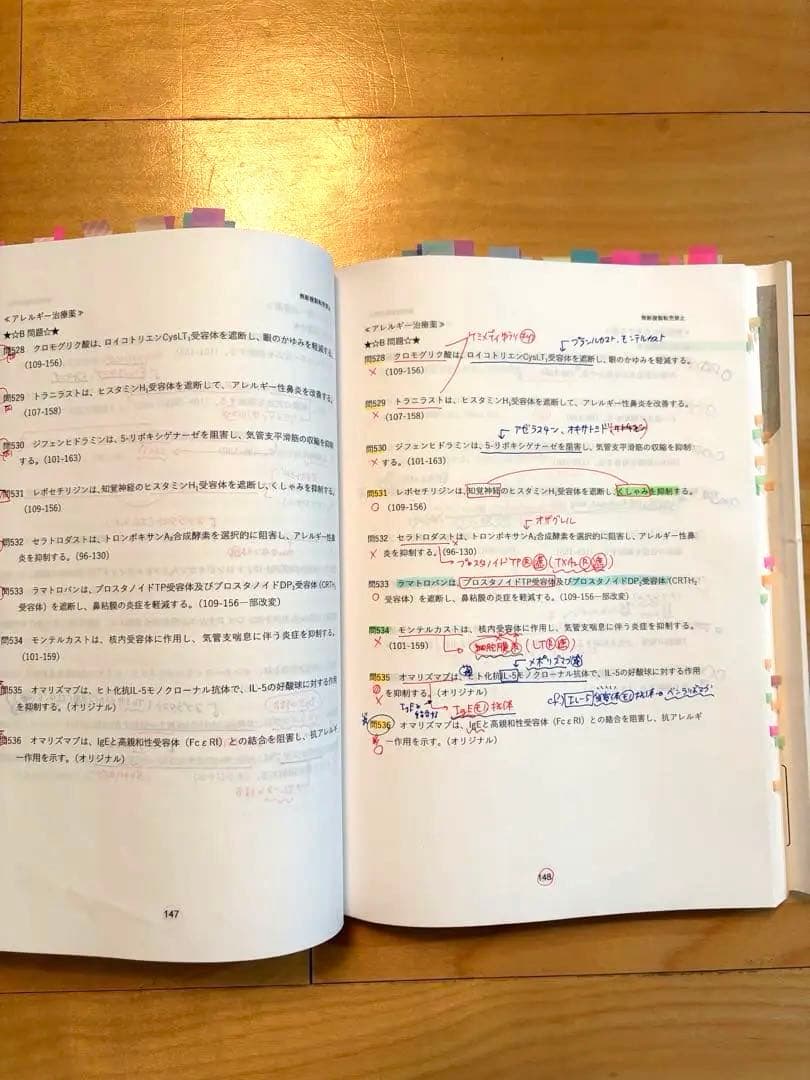 無断複製転売禁止
≪アレルギー治療薬≫
★☆B 問題☆★
問528 クロモグリク酸は、ロイコトリエンCysLT₁受容体を遮断し、眼のかゆみを軽減する。
(109-156)
問529 トラニラストは、ヒスタミンH₁受容体を遮断して、アレルギー性鼻炎を改善する。
(107-158)
問530 ジフェンヒドラミンは、5-リポキシゲナーゼを阻害し、気管支平滑筋の収縮を抑制
する。(101-163)
問531 レボセチリジンは、知覚神経のヒスタミンH₁受容体を遮断し、くしゃみを抑制する。
(109-156)
問532 セラトロダストは、トロンボキサンA₂合成酵素を選択的に阻害し、アレルギー性鼻
炎を抑制する。(96-130)
問533 ラマトロバンは、プロスタノイドTP受容体及びプロスタノイドDP₂受容体(CRTH₂
受容体）を遮断し、鼻粘膜の炎症を軽減する。（109-156一部改変）
問534 モンテルカストは、核内受容体に作用し、気管支喘息に伴う炎症を抑制する。
(101-159)
問535 オマリズマブは、ヒト化抗IL-5モノクローナル抗体で、IL-5の好酸球に対する作用
を抑制する。（オリジナル）
問536 オマリズマブは、IgEと高親和性受容体（FcεRI）との結合を阻害し、抗アレルギ
ー作用を示す。（オリジナル）
147
無断複製転売禁止
≪アレルギー治療薬≫
★☆B 問題☆★
プランルカスト、モンテルカスト
問528 クロモグリク酸は、ロイコトリエンCysLT₁受容体を遮断し、眼のかゆみを軽減する。
× (109-156)
問529 トラニラストは、ヒスタミンH₁受容体を遮断して、アレルギー性鼻炎を改善する。
× (107-158)
アゼラスチン、オキサトミド
問530 ジフェンヒドラミンは、5-リポキシゲナーゼを阻害し、気管支平滑筋の収縮を抑制
× する。(101-163)
問531 レボセチリジンは、知覚神経のヒスタミンH₁受容体を遮断し、くしゃみを抑制する。
○ (109-156)
オザグレル
問532 セラトロダストは、トロンボキサンA₂合成酵素を選択的に阻害し、アレルギー性鼻
× 炎を抑制する。(96-130)
プロスタノイドTP受遮 (TXA₂受遮)
問533 ラマトロバンは、プロスタノイドTP受容体及びプロスタノイドDP₂受容体(CRTH₂
○ 受容体）を遮断し、鼻粘膜の炎症を軽減する。（109-156一部改変）
問534 モンテルカストは、核内受容体に作用し、気管支喘息に伴う炎症を抑制する。
× (101-159)
細胞膜 (LT受遮)
メポリズマブ
問535 オマリズマブは、ヒト化抗IL-5モノクローナル抗体で、IL-5の好酸球に対する作用
× を抑制する。（オリジナル）
IgE
IgE モノ抗体
cf) IL-5受容体モノ抗体→ベンラリズマブ
問536 オマリズマブは、IgEと高親和性受容体（FcεRI）との結合を阻害し、抗アレルギ
○ ー作用を示す。（オリジナル）
148